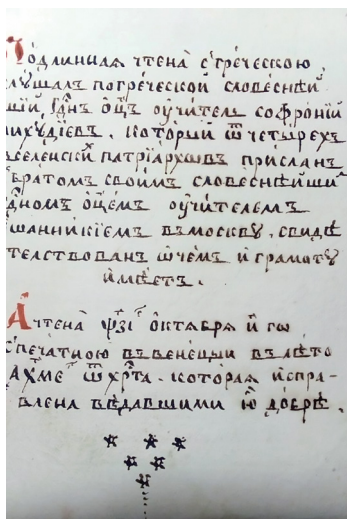 Подлинная чтена̀ с̾ гре́ческою
лушал погре́ческой словеснѣй
шїй гд҇нъ ѻ҆ц҃ъ оу҆чи́тель софро́нїй
лихꙋ́дїевъ. кото́рый ѿ четы́рехъ
вселенскиⷯ патрїа́рхѡвъ при́сланъ
бра́томъ свои́мъ слове́снѣйшиⷨ
дномъ о҆це́мъ оу҆чи́телемъ
ѡанники́емъ въ москвꙋ̀. свидѣ
телствованъ ѿче́мъ и҆ гра́мотꙋ
и҆мѣ́етъ.
А чтена̀ ѱзі о҆ктѧбрѧ и҃ го
с̾печатною въ вене́цыи въ лѣ́то
ахме ѿ хрⷭта̀. кото́рая и҆спра-
влена вѣ́давшими ю҆̀ до́брѣ.